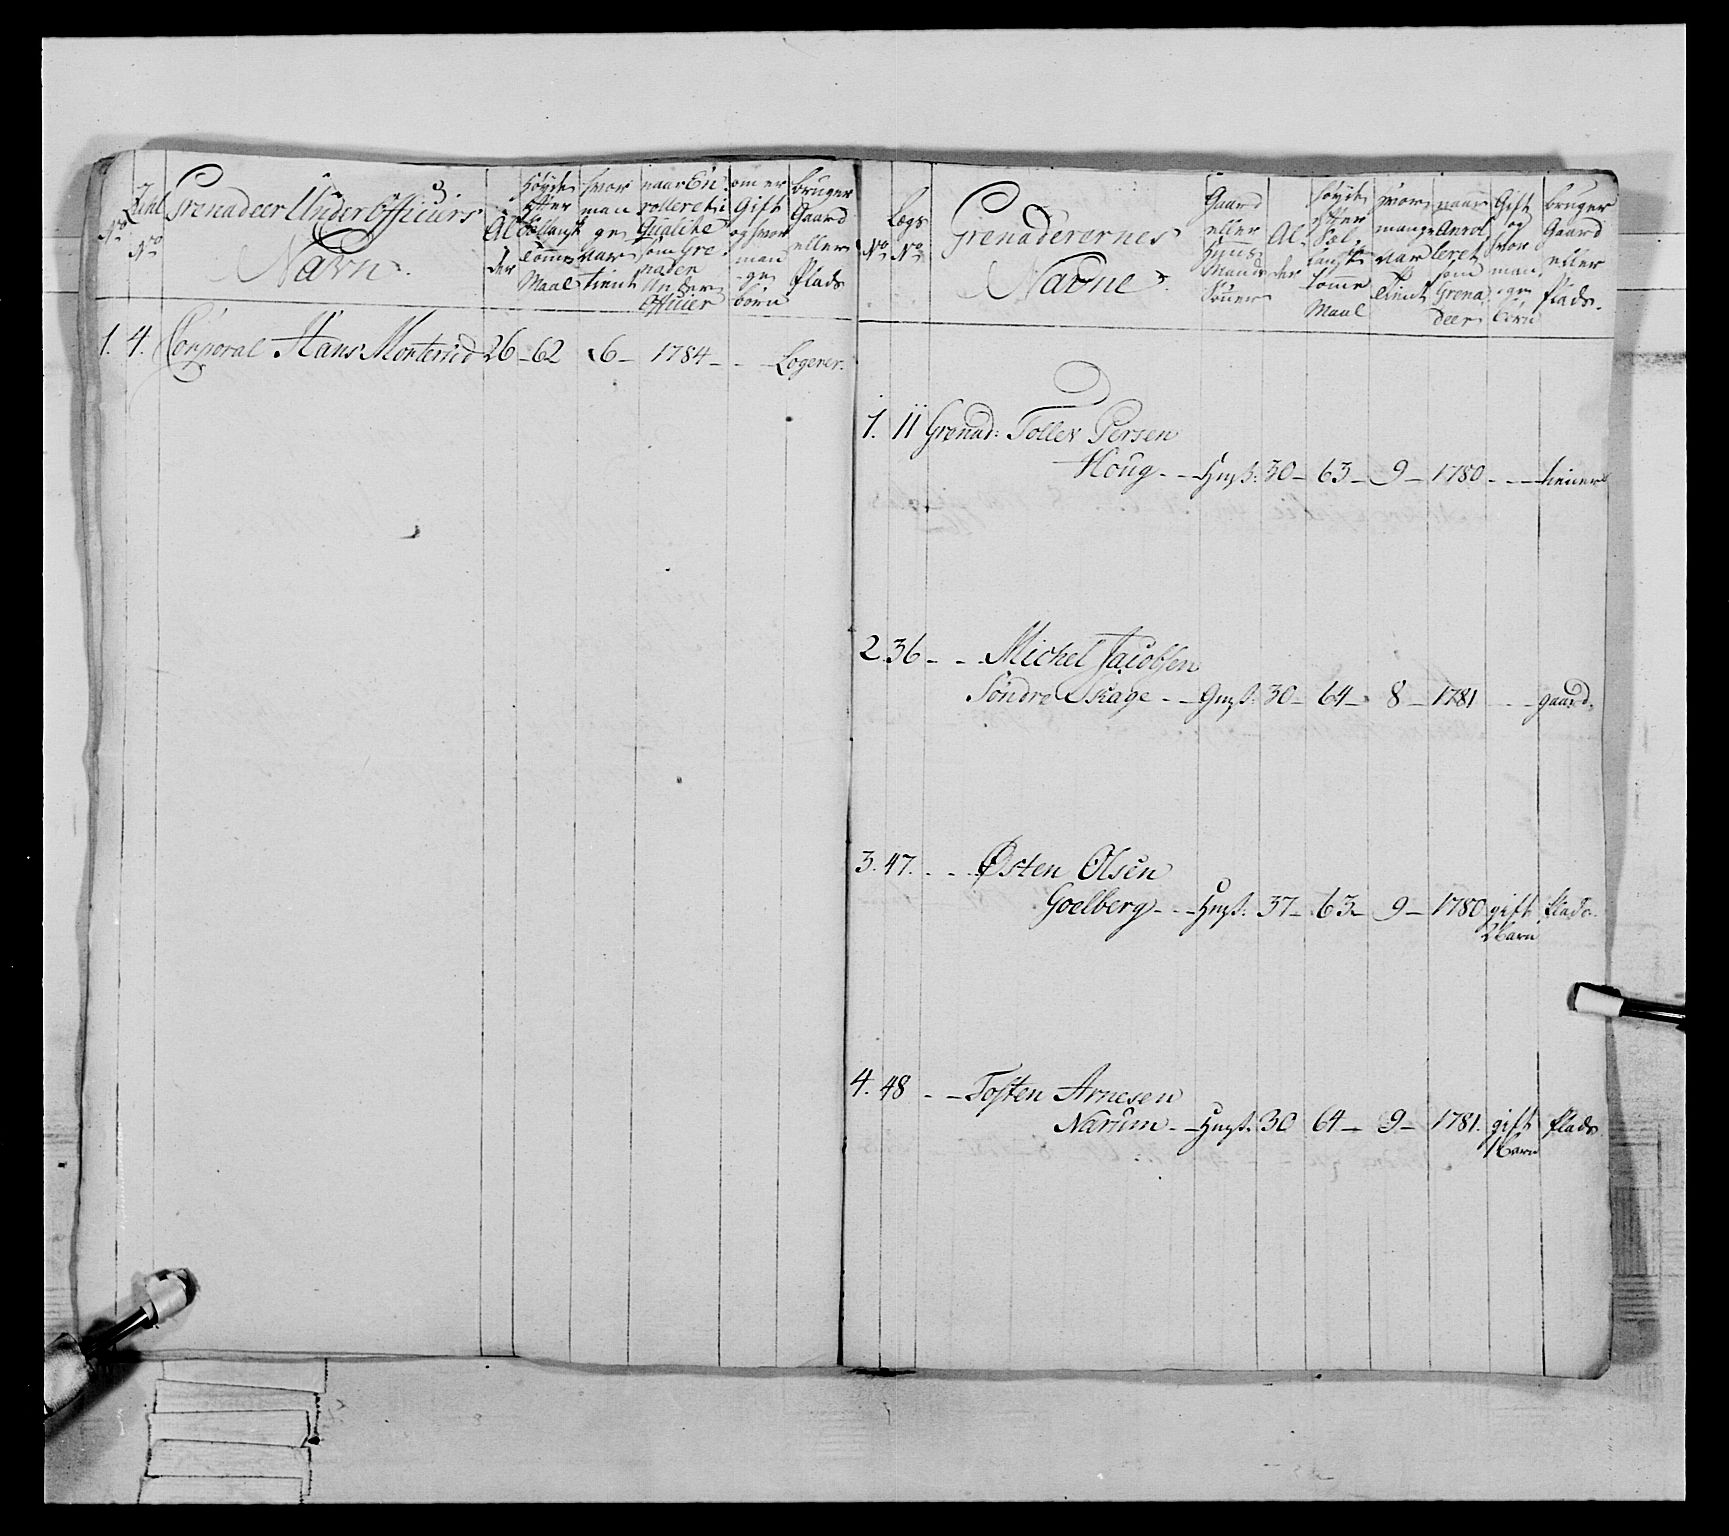 Grenadeer Under Officiers
Navn.
Al
der
Høyde
efter
Tomme
Maal
hvor
man
ge
var
tient
naar En
rolleret i
Qualité
som Gre
nader
Under
Officier
om er
Gift
og hvor
man
ge
börn
bruger
Gaard
eller
Plads
1. 4. Corporal Hans Morterud 26 - 62 6 - 1784 - - - Logerer.
No
Lægs
No
Grenaderernes
Navne.
Gaard
eller
Al
der
Høyde
efter
Tomme
Maal
hvor
mange
var
tient
naar
Enrol
leret
som
Grena
deer
Gift
og
hvor
man
ge
börn
bruger
Gaard
eller
plads.
1. 11 Grenad: Tollev Persen
Houg - - Hmß: 30 - 63 - 9 - 1780 - - - tiener
2. 36 - - - Michel Jacobsen
Söndre Skage - - Gmß: 30 - 64 - 8 - 1781 - - - gaard.
3. 47. - - - Østen Olsen
Goelberg - - - Hmß: 37 - 63 - 9 - 1780 gift plads.
2 barn
4. 48 - - Tosten Arnesen
Narum - - Hmß: 30 64 - 9 - 1781. gift plads.
1 barn